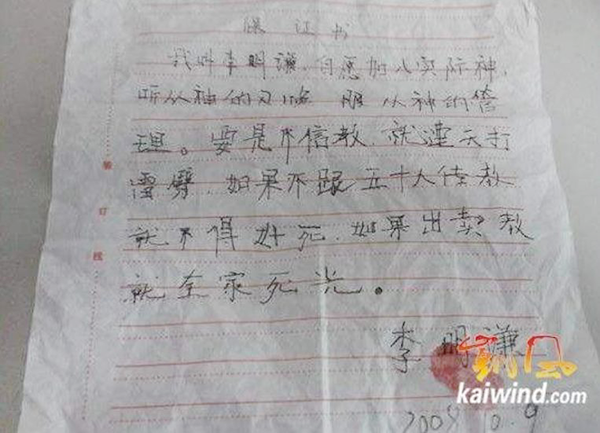 保证书
我叫李明谦,自愿加入实际神,
听从神的 服从神的管
理。要是不信教,就遭天打
雷劈,如果不跟五十人传教
就不得好死,如果出卖教
就全家死光。
李明谦
凯风
kaiwind.com
装订线